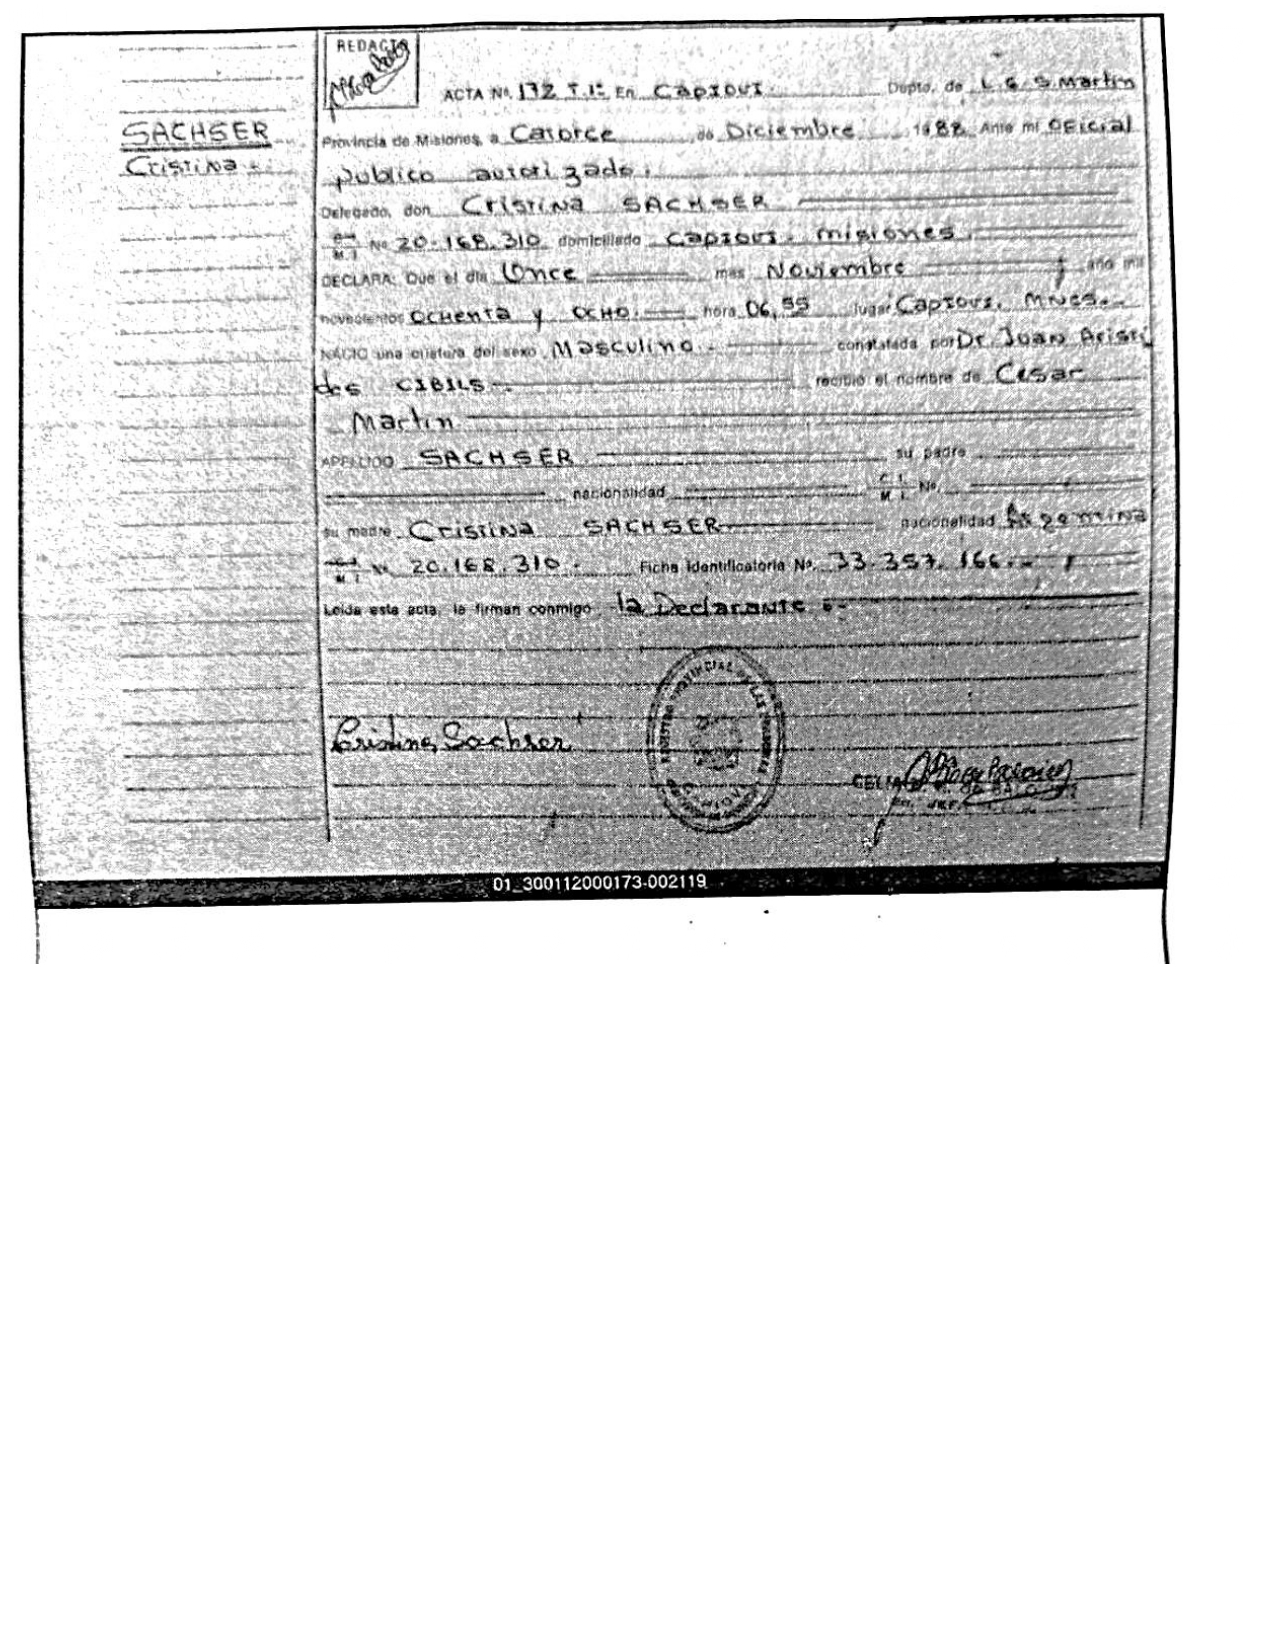 REDACTO
ACTA Nº 172 T.1º En Capioví Depto. de L. G. S. Martin
SACHSER
Cristina.-
Provincia de Misiones, a Catorce de Diciembre 1988 Ante mí Oficial
publico autorizado.
Delegado, don Cristina SACHSER
M. I. Nº 20.168.310 domiciliado Capiovi. misiones.
DECLARA: Que el día Once mes Noviembre año mil
novecientos Ochenta y Ocho. hora 06,55 lugar Capiovi. Mnes.-
NACIO una criatura del sexo Masculino.- constatada por Dr Juan Aristi
des CIBILS.- recibió el nombre de Cesar
Martin
APELLIDO SACHSER su padre
nacionalidad C. I. M. I. No.
su madre Cristina SACHSER nacionalidad Argentina
M. I. Nº 20.168.310. Ficha Identificatoria Nº. 33.357.166.-
Leída esta acta, la firman conmigo la Declarante.-
Cristina Sachser
REGISTRO PROVINCIAL DE LAS PERSONAS
CAPIOVI
CELIA
01_300112000173-002119